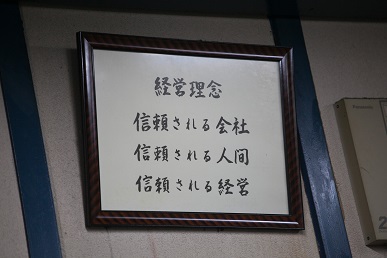 経営理念
信頼される会社
信頼される人間
信頼される経営
Panasonic
2